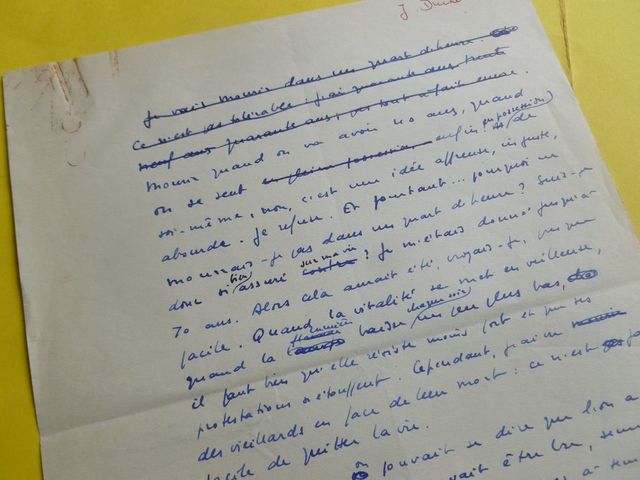 J. Du
Je vais mourir dans un quart d'heure.
Ce n'est pas tolérable : j'ai quarante ans trente
neuf ans, quarante ans, pas tout à fait encore.
Mourir quand on va avoir 40 ans, quand
on se sent en pleine possession enfin (en possession) de
soi-même, non, c'est une idée affreuse, injuste,
absurde. Je refuse. Et pourtant... pourquoi ne
mourrais-je pas dans un quart d'heure? Suis-je
donc si bien assuré contre sur ma vie? Je m'étais donné jusqu'à
70 ans. Alors cela aurait été, croyais-je, presque
facile. Quand la vitalité se met en veilleuse,
quand la lumière baisse chaque soir un peu plus bas,
il faut bien qu'elle résiste moins fort et que ses
protestations s'étouffent. Cependant, j'ai vu
des vieillards en face de leur mort : ce n'est pa
facile de quitter la vie.
on pouvait se dire que l'on a
vait être lu,